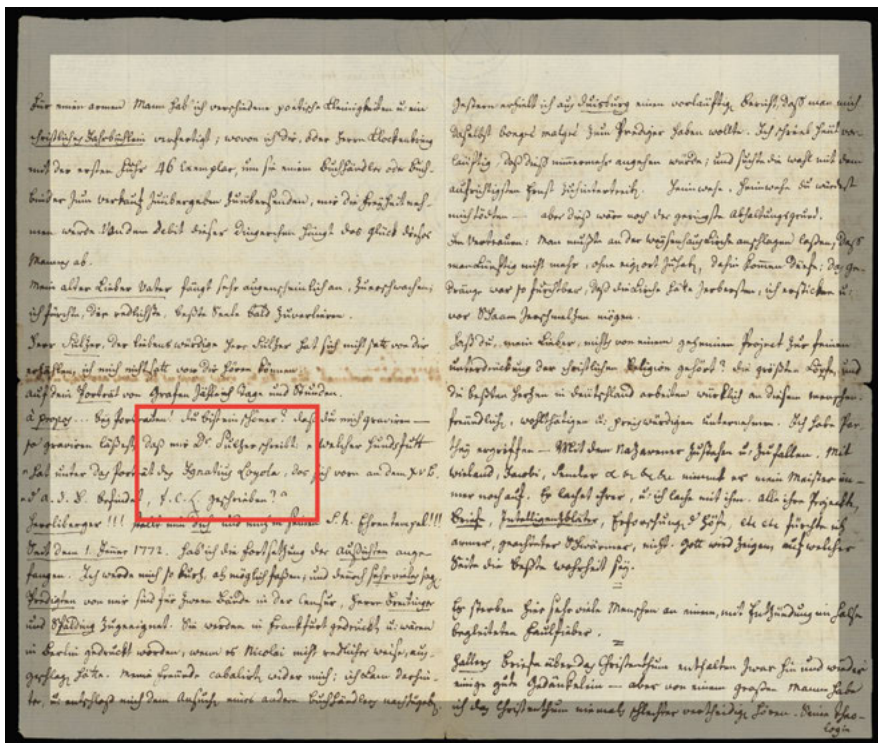 Für einen armen Mann hab' ich verschiedene poetische Kleinigkeiten u: ein
christliches Jahrbüchlein verfertigt; wovon ich dir, oder Herrn Klockenbring
mit der ersten Fuhr 46 Exemplar, um sie einem Buchhändler oder Buch-
binder zum verkauf zu übergeben zu übersenden, mir die Freyheit neh-
men werde. Von dem debit dieser Dingerchen hängt das Glück dieses
Mannes ab.
Mein alter Lieber Vater fängt sehr augenscheinlich an, zu erschwachen;
ich fürchte, die redlichste, beßte Seele bald zu verlieren.
Herr Sulzer, der liebenswürdige Herr Sulzer hat sich nicht satt von dir
erzählen, ich mich nicht satt von dir hören können
auf dein Porträt von Grafen zählen ich Tage und Stunden.
à propos... daß du mich graviren —
so graviren läßest! daß mir Dr Sulzer schreibt: "welcher Hundsfutt
"hat unter das Porträt des Ignatius Loyola, das sich vorn an dem XV B.
"d' a. d. B. befindet, J. C. L. geschrieben?"
Herrliberger!!! stellt mich dich und mich in seinen S.h. Ehrentempel!!!
Seit dem 1. Jenner 1772. hab ich die fortsetzung der Aussichten ange-
fangen. Ich werde mich so kurz, als möglich faßen; und
Predigten von mir sind für zween Bände in der Censur, Herrn Breitinger
und Spalding zugeeignet. Sie werden in Frankfurt gedruckt u: wären
in Berlin gedruckt worden, wenn es Nicolai nicht redlicher weise, aus-
geschlagen hätte. Meine freunde cabalirten wider mich; ich kam darhin-
ter, u: entschloß mich dem Ansuchen eines andern Buchhändlers nachzugeben.
Gestern erhielt ich aus Duisburg einen vorläuftigen Bericht, daß man mich
daselbst bongré malgré zum Prediger haben wollte. Ich schrieb heut vor-
läuftig, daß dieß nimmermehr angehen würde; und suchte die wahl mit dem
aufrichtigsten Ernst zu hintertreiben. Heimwehe, Heimwehe du würdest
mich tödten — aber dieß wär noch der geringste Abhaltungsgrund.
Im Vertrauen: Man mußte an der waysenhauskirche anschlagen laßen, daß
man künftig nicht mehr, ohne eignen ort zuhaben, dahin kommen dürfe; das Ge-
dränge war so furchtbar, daß die Kirche hätte zerbersten; ich ersticken u:
vor Schaam zerschmelzen mögen.
Hast du, mein Lieber, nichts von einem geheimen Project zur feinen
unterdrückung der christlichen Religion gehört? die größten Köpfe, und
die beßten Herzen in Deutschland arbeiten würklich an diesem menschen-
freundlichen, wohlthätigen u: preiswürdigen unternehmen. Ich habe Par-
they ergriffen — Mit dem Nazarener zustehen u: zufallen. Mit
wieland, Jacobi, nimmt es mein Maister im-
mer noch auf. Er lachet ihrer, u: ich lache mit ihm. alle ihre Projeckte,
Briefe, Intelligenzblätter, Erforschung d' Höfe, etc etc fürchte ich
armer, geachteter Schwärmer, nicht. Gott wird zeigen, auf welcher
Seite die beßte wahrheit sey.
Es sterben hier sehr viele Menschen an einem, mit Entzündung im Halse
begleiteten Faulfieber.
Hallers Briefe über das Christenthum enthalten zwar hin und wieder
einige gute Gedänkelein — aber von einem großen Manne habe
ich das Christenthum niemals schlechter vertheidigen hören. Seine Theo-
logie